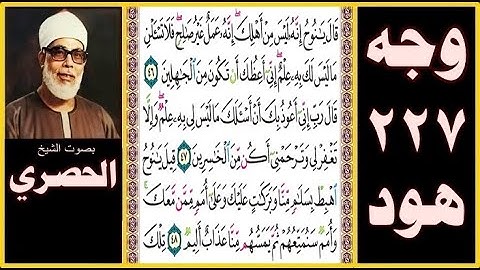 وجه
٢٢٧
هود
بصوت الشيخ
الحصري
قَالَ يَٰنُوحُ إِنَّهُۥ لَيۡسَ مِنۡ أَهۡلِكَۖ إِنَّهُۥ عَمَلٌ غَيۡرُ صَٰلِحٖۖ فَلَا تَسۡـَٔلۡنِ
مَا لَيۡسَ لَكَ بِهِۦ عِلۡمٌۖ إِنِّيٓ أَعِظُكَ أَن تَكُونَ مِنَ ٱلۡجَٰهِلِينَ ٤٦
قَالَ رَبِّ إِنِّيٓ أَعُوذُ بِكَ أَنۡ أَسۡـَٔلَكَ مَا لَيۡسَ لِي بِهِۦ عِلۡمٞۖ وَإِلَّا
تَغۡفِرۡ لِي وَتَرۡحَمۡنِيٓ أَكُن مِّنَ ٱلۡخَٰسِرِينَ ٤٧ قِيلَ يَٰنُوحُ
ٱهۡبِطۡ بِسَلَٰمٖ مِّنَّا وَبَرَكَٰتٍ عَلَيۡكَ وَعَلَىٰٓ أُمَمٖ مِّمَّن مَّعَكَۚ
وَأُمَمٞ سَنُمَتِّعُهُمۡ ثُمَّ يَمَسُّهُم مِّنَّا عَذَابٌ أَلِيمٞ ٤٨ تِلۡكَ